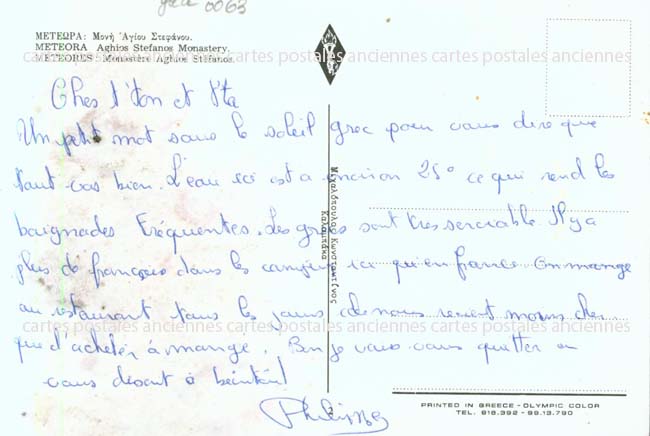 0063
ΜΕΤΕΩΡΑ: Μονή Ἁγίου Στεφάνου.
METEORA Aghios Stefanos Monastery.
METEORES: Monastère Aghios Stefanos.
cartes postales anciennes cartes postales anciennes cartes postales anciennes
Ches t'ton et t'ta
Un petit mot sous le soleil grec pour vous dire que
tout vas bien. L'eau ici est a environ 25° ce qui rend les
baignades fréquentes. Les grecs sont tres serviable. Il y a
plus de français dans les campings ici qu'en france. On mange
au restaurant tous les jours cela nous revient moins cher
cartes postales anciennes cartes postales anciennes cartes postales anciennes
que d'acheter à mange. Bon je vais vous quitter en
vous disant à bientôt!
Philippe
Καλαμπάκα
PRINTED IN GREECE - OLYMPIC COLOR
TEL. 818.392 - 98.13.790